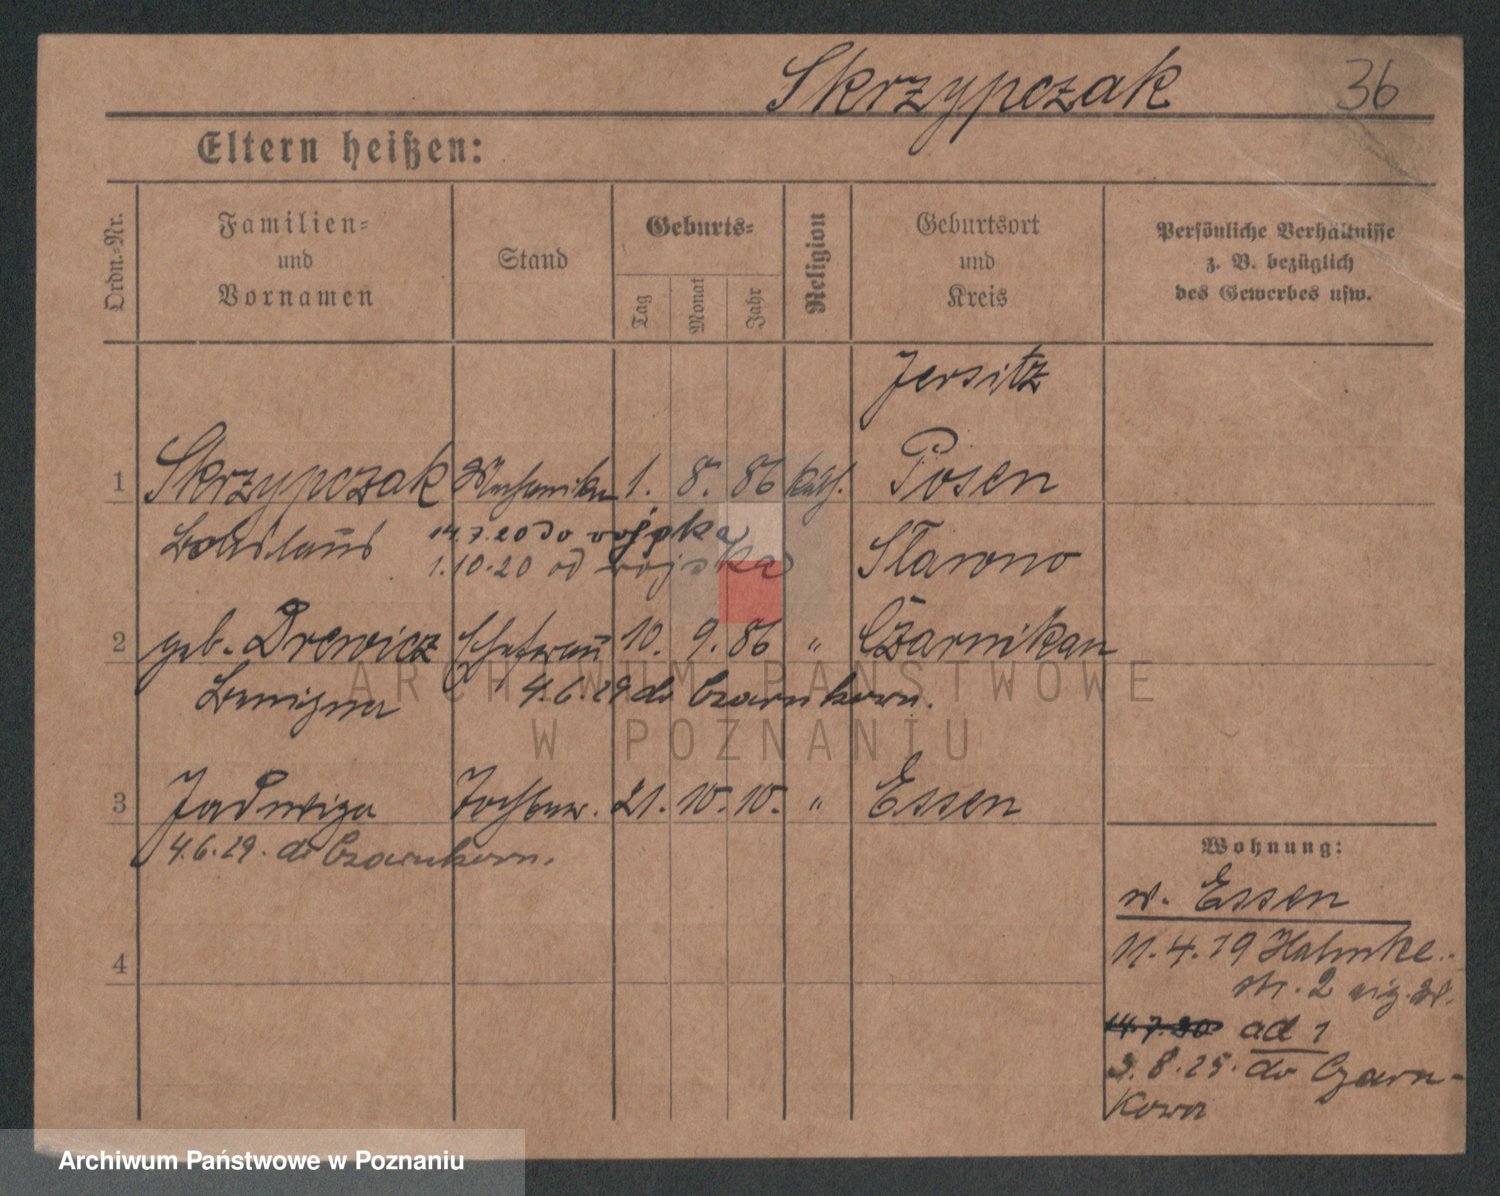 Skrzypczak 36
Eltern heißen:
Ordn.-Nr.
Familien-
und
Vornamen
Stand
Geburts-
Tag
Monat
Jahr
Religion
Geburtsort
und
Kreis
Persönliche Verhältnisse
z. B. bezüglich
des Gewerbes usw.
Jersitz
1 Skrzypczak Mechaniker 1. 8. 86 kath. Posen
Boleslaus 14.7.20 do wojska Slawno
1.10.20 od wojska
2 geb. Drewicz Ehefrau 10. 9. 86 " Czarnikau
Benigna 4.6.29 do Czarnkowa.
3 Jadwiga Tochter. 21. 10. 10. " Essen
4.6.29. do Czarnkowa.
4
Wohnung:
w. Essen
11.4.19 Hahnke
str. 2
14.7.20 ad 1
3.8.25. do Czarn-
kowa
ARCHIWUM PAŃSTWOWE
W POZNANIU
Archiwum Państwowe w Poznaniu